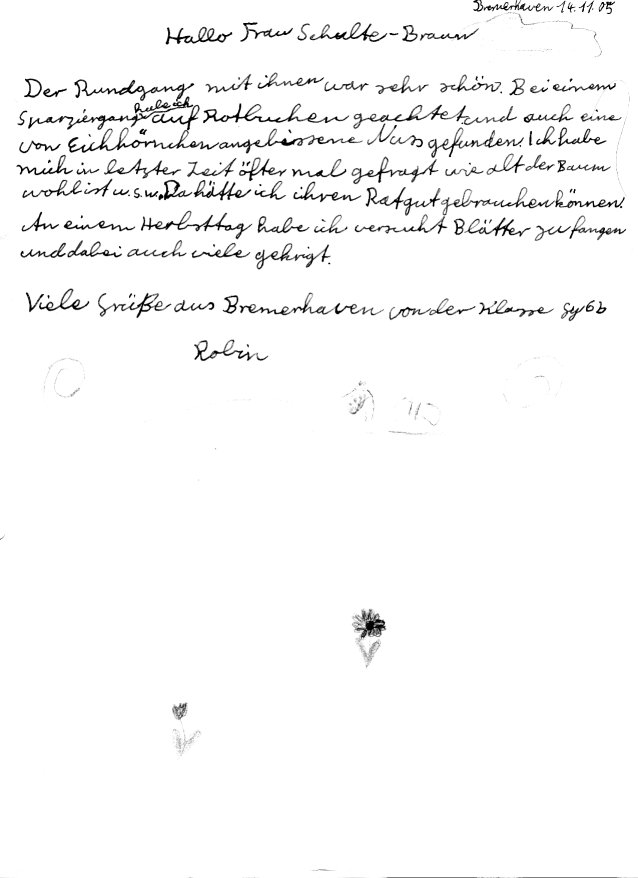 Bremerhaven 14.11.05
Hallo Frau Schulte-Braun
Der Rundgang mit ihnen war sehr schön. Bei einem
Sparziergang habe ich auf Rotbuchen geachtet und auch eine
von Eichhörnchen angebissene Nuss gefunden! Ich habe
mich in letzter Zeit öfter mal gefragt wie alt der Baum
wohl ist u.s.w. Da hätte ich ihren Rat gut gebrauchen können!
An einem Herbsttag habe ich versucht Blätter zu fangen
und dabei auch viele gekrigt.
Viele Grüße aus Bremerhaven von der Klasse Gy6b
Robin